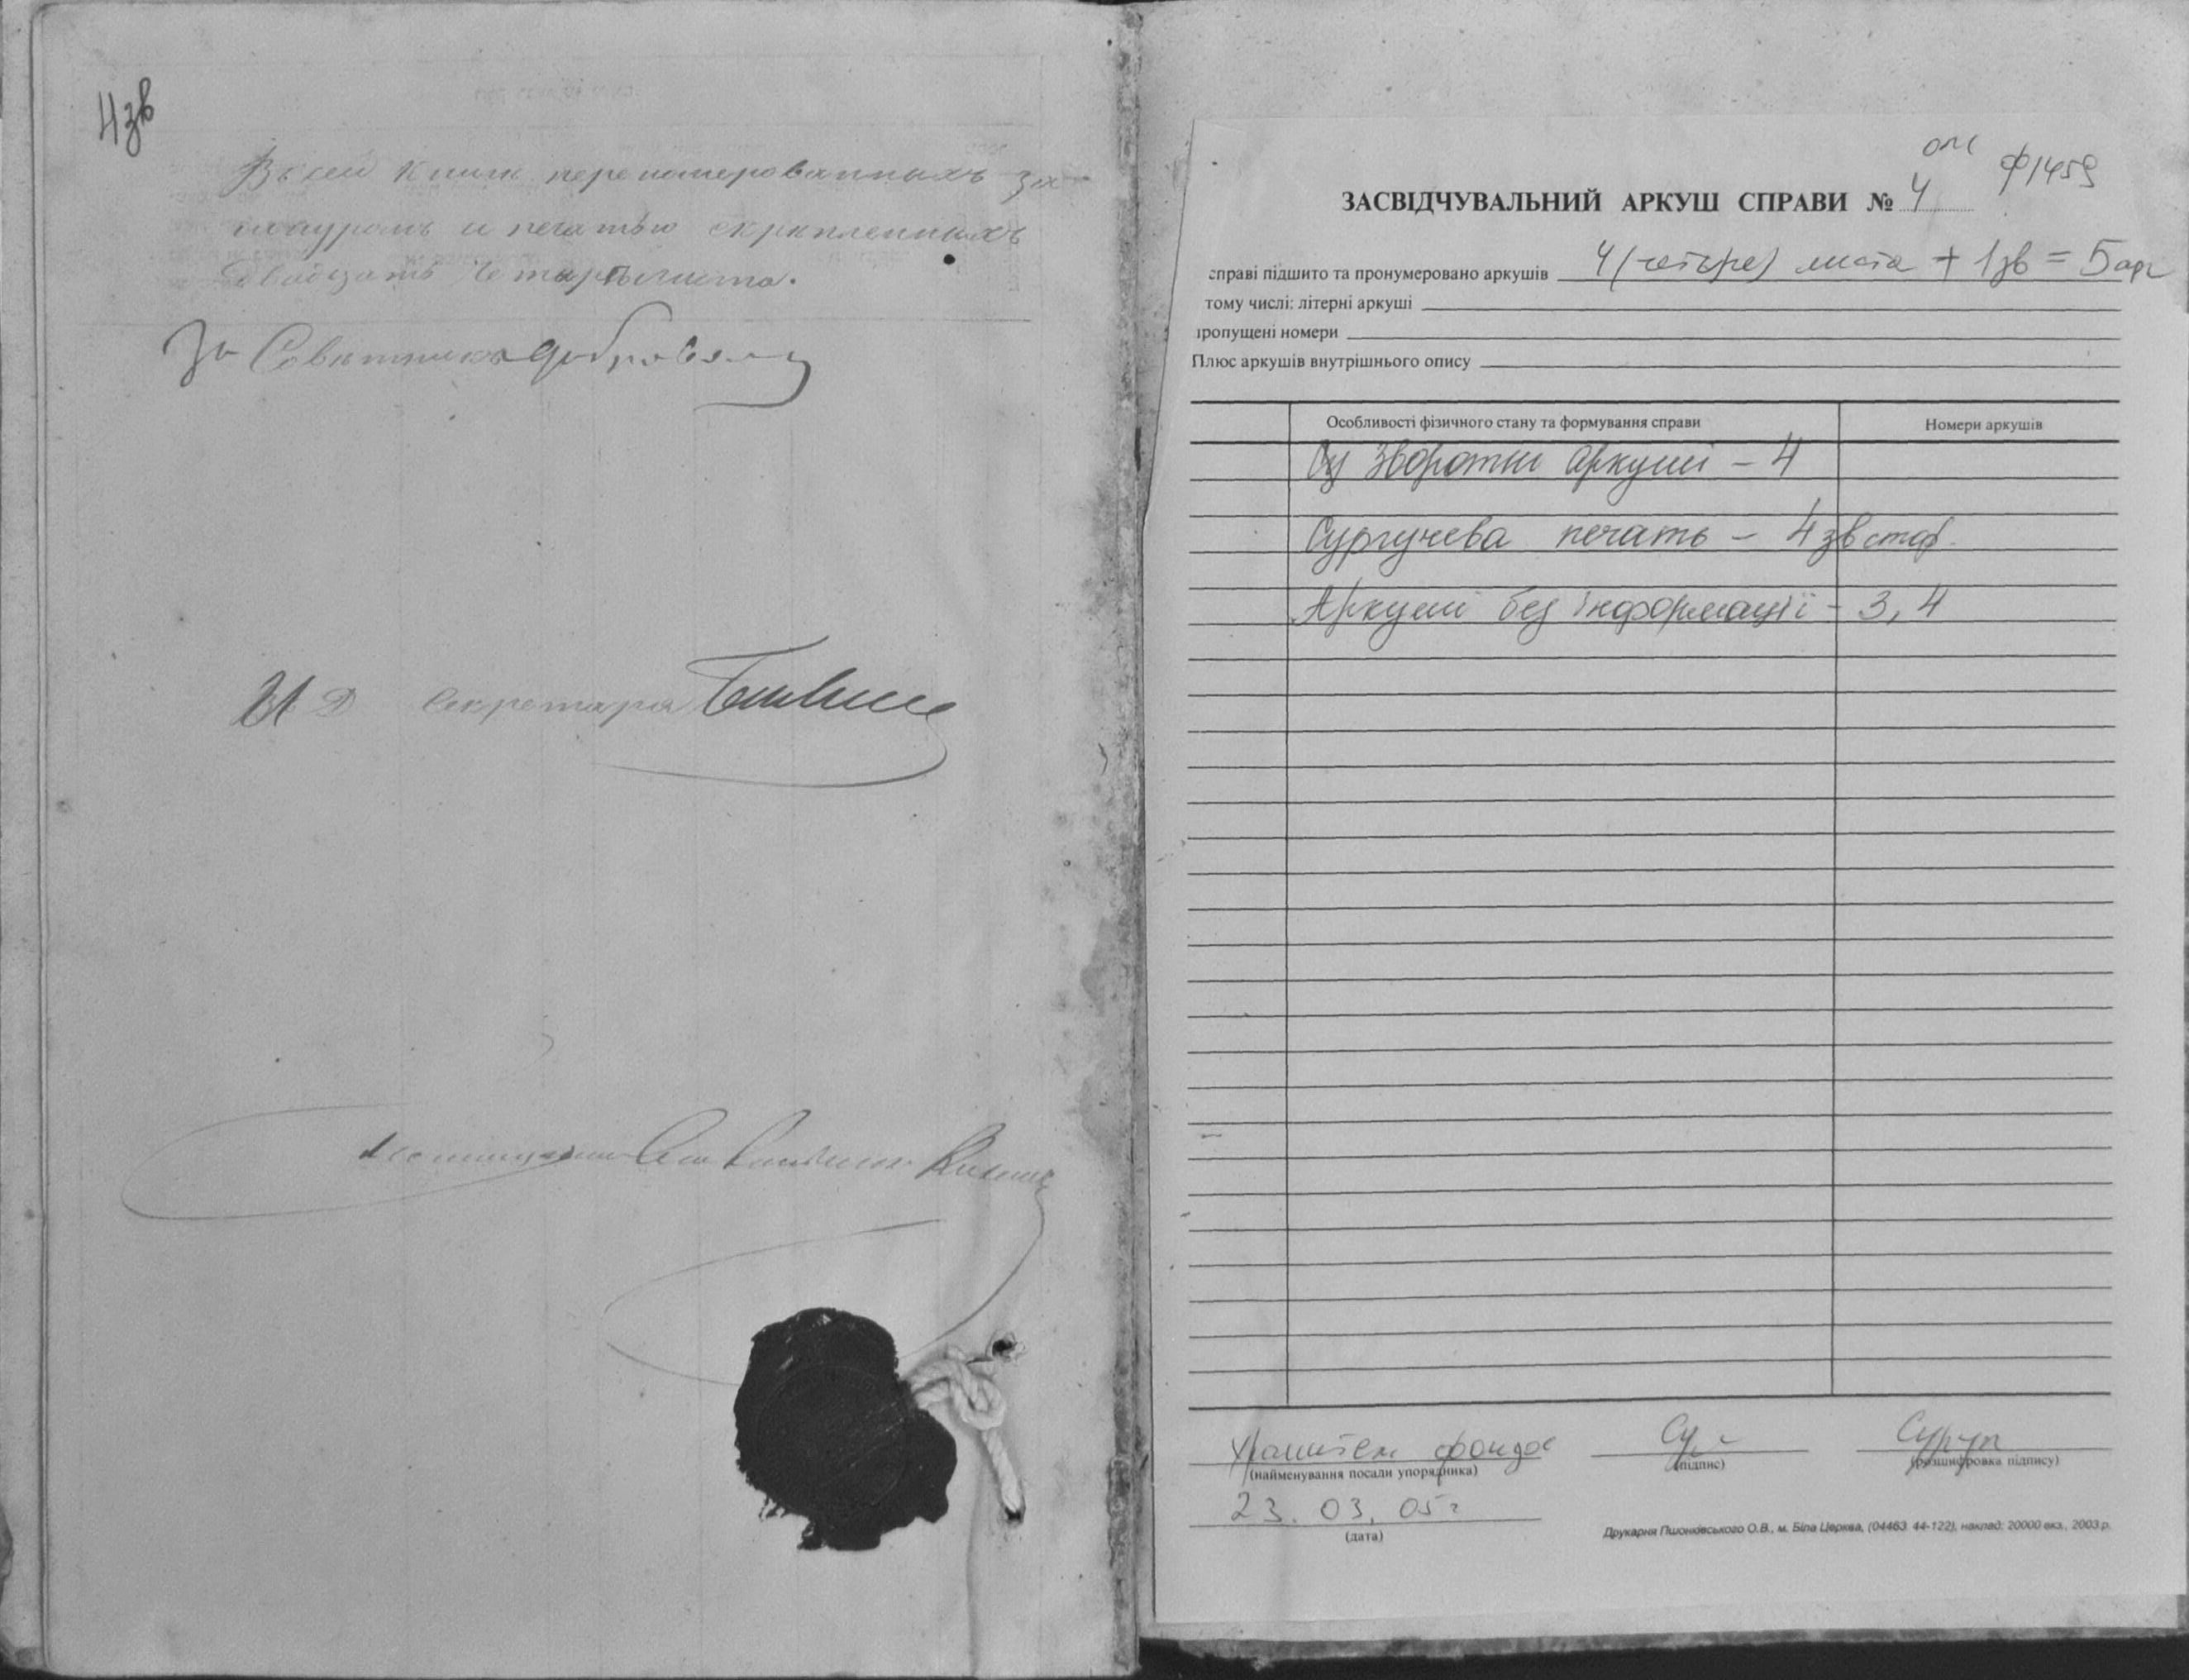 4зв
Въ сей книге переномерованныхъ за
шнуромъ и печатью скрепленныхъ
двадцать четыре листа.
За Советника
И Д Секретаря
опс ф1459
ЗАСВІДЧУВАЛЬНИЙ АРКУШ СПРАВИ № 4
справі підшито та пронумеровано аркушів 4 (четыре) листа + 1зв = 5 арк
тому числі: літерні аркуші
ропущені номери
Плюс аркушів внутрішнього опису
Особливості фізичного стану та формування справи Номери аркушів
Зворотні аркуші – 4
Сургучева печать – 4 зв
Аркуші без інформації – 3, 4
Хранитель фондов
(найменування посади упорядника) (підпис) (розшифровка підпису)
23. 03. 05г
(дата)
Друкарня Пшонківського О.В., м. Біла Церква, (04463 44-122), наклад: 20000 екз., 2003 р.